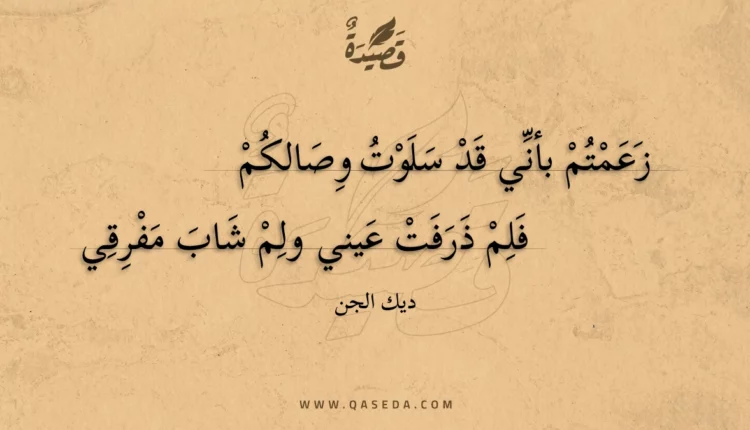 قَصِيْدَةٌ
زَعَمْتُمْ بأنِّي قَدْ سَلَوْتُ وِصَالكُمْ
فَلِمْ ذَرَفَتْ عَيني ولِمْ شَابَ مَفْرِقِي
ديك الجن
WWW.QASEDA.COM